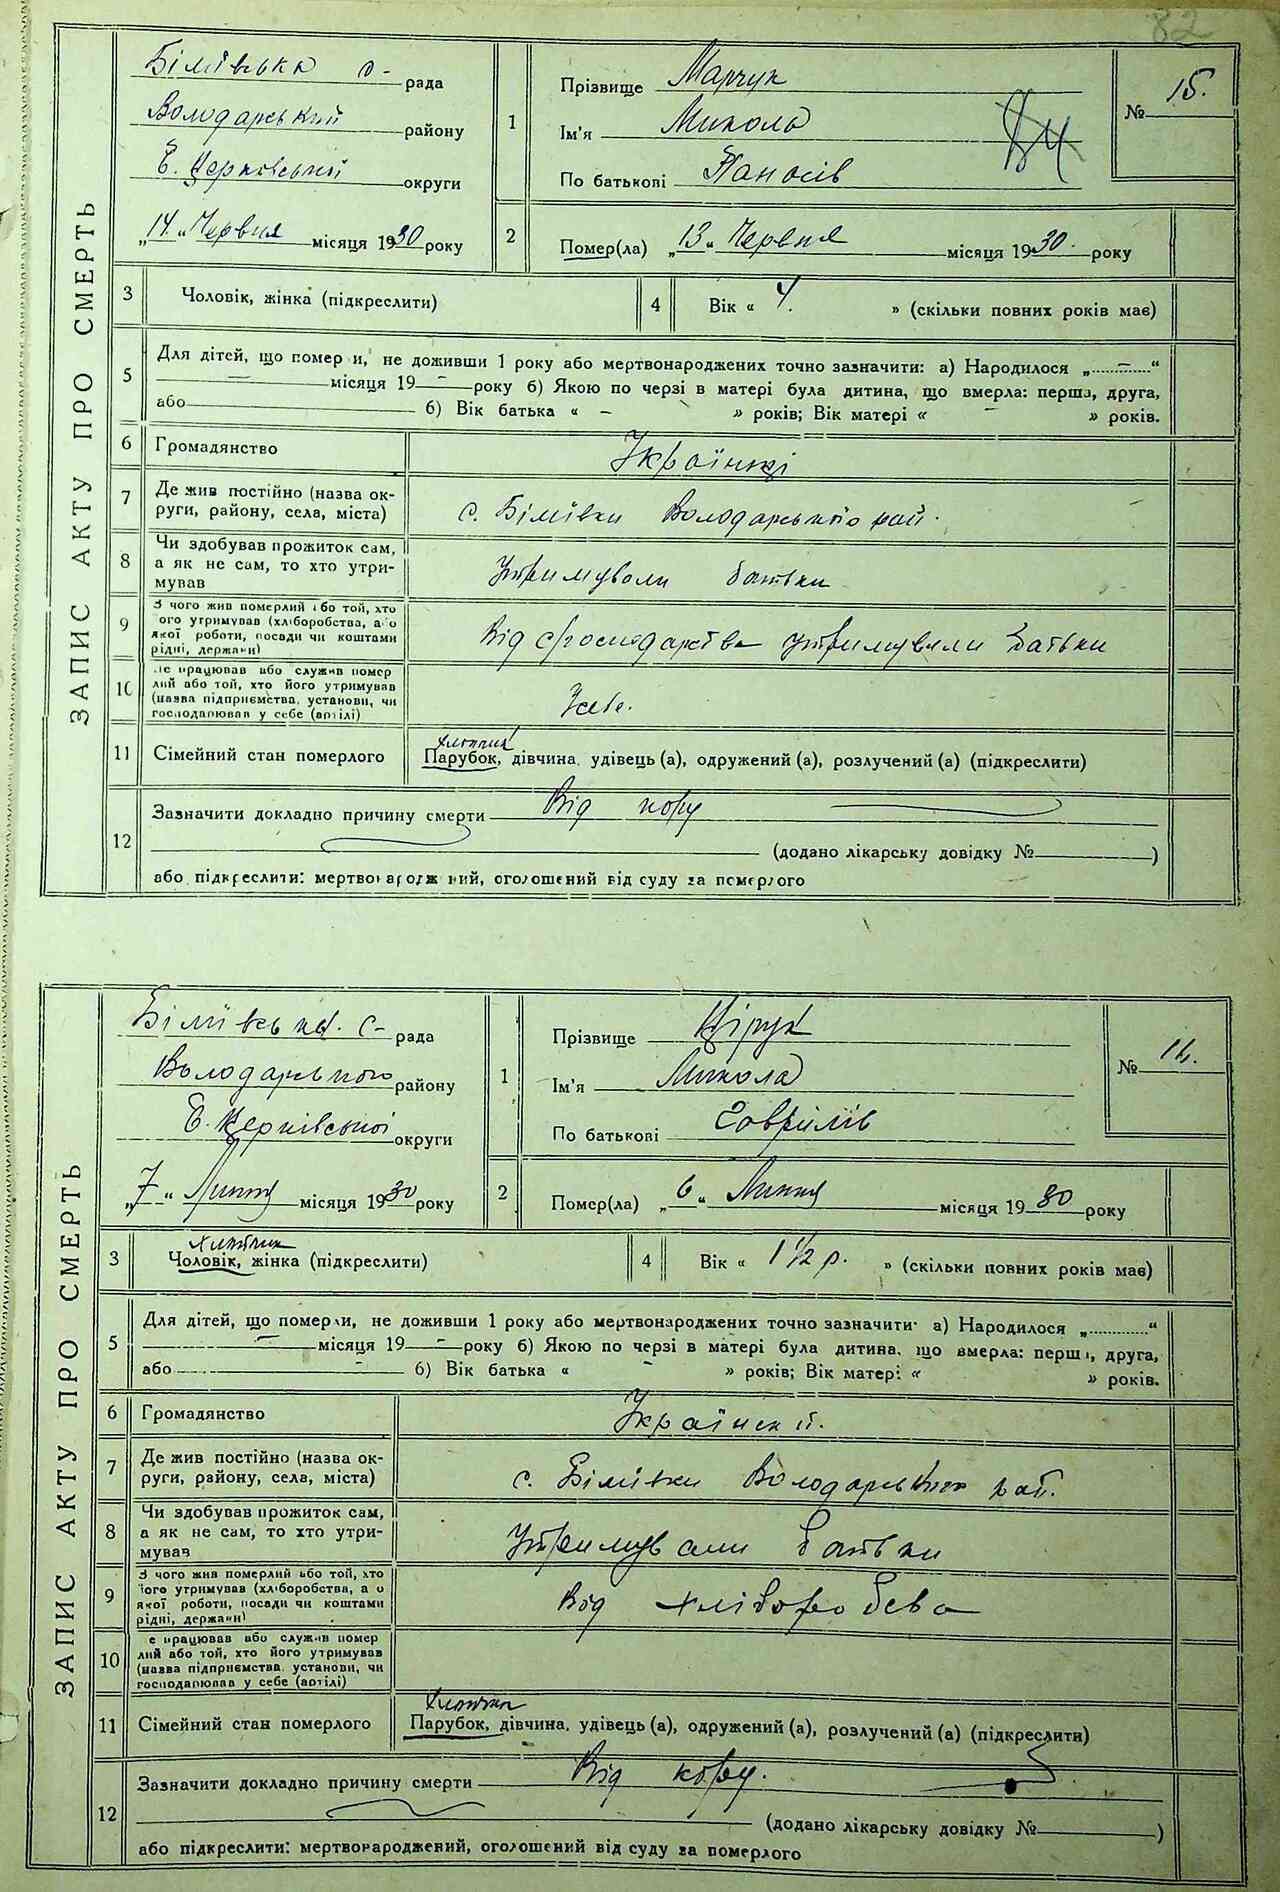 82
ЗАПИС АКТУ ПРО СМЕРТЬ
Біліївська с- рада
Володарський району
Б. Церківський округи
„14“ Червня місяця 1930 року
1
Прізвище Марчук
Ім'я Микола
По батькові Панасів
№ 15.
2
Помер(ла) „13“ Червня місяця 1930. року
3 Чоловік, жінка (підкреслити)
4 Вік « 4. » (скільки повних років має)
5 Для дітей, що помер и, не доживши 1 року або мертвонароджених точно зазначити: а) Народилося „..........“
місяця 19 — року б) Якою по черзі в матері була дитина, що вмерла: перша, друга,
або 6) Вік батька « — » років; Вік матері « — » років.
6 Громадянство
7 Де жив постійно (назва ок-
руги, району, села, міста) с. Біліївки Володарського рай.
8 Чи здобував прожиток сам,
а як не сам, то хто утри-
мував Утримували батьки
9 З чого жив померлий або той, хто
ого утримував (хліборобства, а о
якої роботи, посади чи коштами
рідні, держави) Від сгосподарства утримували батьки
10 е працював або служив помер
лий або той, хто його утримував
(назва підприємства, установи, чи
господарював у себе (артілі) У себе.
11 Сімейний стан померлого хлопчик
Парубок, дівчина, удівець (а), одружений (а), розлучений (а) (підкреслити)
12 Зазначити докладно причину смерти Від кору
(додано лікарську довідку № )
або підкреслити: мертвонароджений, оголошений від суду за померлого
ЗАПИС АКТУ ПРО СМЕРТЬ
Біліївська. с- рада
Володарського району
Б. Церківської округи
„7“ Липня місяця 1930 року
1
Прізвище Цірук
Ім'я Микола
По батькові Гаврилів
№ 16.
2
Помер(ла) „6“ Липня місяця 1930 року
хлопчик
3 Чоловік, жінка (підкреслити)
4 Вік « 1 1/2 р. » (скільки повних років має)
5 Для дітей, що померли, не доживши 1 року або мертвонароджених точно зазначити· а) Народилося „............“
місяця 19 — року б) Якою по черзі в матері була дитина, що вмерла: перша, друга,
або 6) Вік батька « — » років; Вік матері « » років.
6 Громадянство Українській.
7 Де жив постійно (назва ок-
руги, району, села, міста) с. Біліївки Володарського рай.
8 Чи здобував прожиток сам,
а як не сам, то хто утри-
мував Утримували батьки
9 З чого жив померлий або той, хто
його утримував (хліборобства, а о
якої роботи, посади чи коштами
рідні, держави) Від хліборобсва
10 е працював або служив помер
лий або той, хто його утримував
(назва підприємства, установи, чи
господарював у себе (артілі)
11 Сімейний стан померлого хлопчик
Парубок, дівчина, удівець (а), одружений (а), розлучений (а) (підкреслити)
12 Зазначити докладно причину смерти Від кору.
(додано лікарську довідку № )
або підкреслити: мертвонароджений, оголошений від суду за померлого